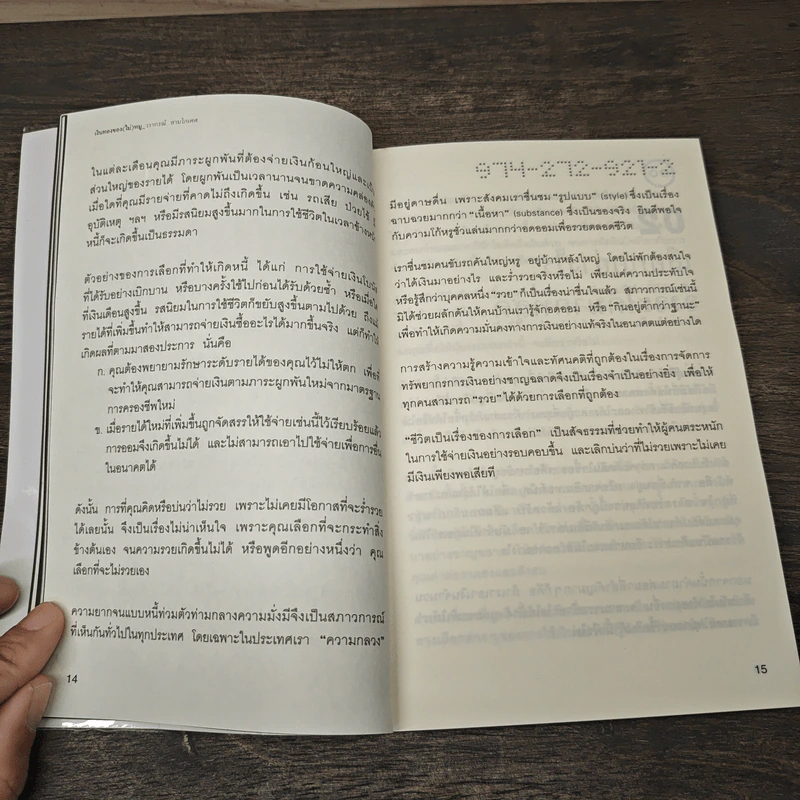 เงินทองของ(ไม่)หมู_วรากรณ์ สามโกเศศ
ในแต่ละเดือนคุณมีภาระผูกพันที่ต้องจ่ายเงินก้อนใหญ่และเป็น
ส่วนใหญ่ของรายได้ โดยผูกพันเป็นเวลานานจนขาดความคล่องตัว
เมื่อใดที่คุณมีรายจ่ายที่คาดไม่ถึงเกิดขึ้น เช่น รถเสีย ป่วยไข้
อุบัติเหตุ ฯลฯ หรือมีรสนิยมสูงขึ้นมากในการใช้ชีวิตในเวลาข้างหน้า
หนี้ก็จะเกิดขึ้นเป็นธรรมดา
ตัวอย่างของการเลือกที่ทำให้เกิดหนี้ ได้แก่ การใช้จ่ายเงินโบนัส
ที่ได้รับอย่างเบิกบาน หรือบางครั้งใช้ไปก่อนได้รับด้วยซ้ำ หรือเมื่อใด
ที่เงินเดือนสูงขึ้น รสนิยมในการใช้ชีวิตก็ขยับสูงขึ้นตามไปด้วย ถึงแม้
รายได้ที่เพิ่มขึ้นทำให้สามารถจ่ายเงินซื้ออะไรได้มากขึ้นจริง แต่ก็ทำให้
เกิดผลที่ตามมาสองประการ นั่นคือ
ก. คุณต้องพยายามรักษาระดับรายได้ของคุณไว้ไม่ให้ตก เพื่อที่
จะทำให้คุณสามารถจ่ายเงินตามภาระผูกพันใหม่จากมาตรฐาน
การครองชีพใหม่
ข. เมื่อรายได้ใหม่ที่เพิ่มขึ้นถูกจัดสรรให้ใช้จ่ายเช่นนี้ไว้เรียบร้อยแล้ว
การออมจึงเกิดขึ้นไม่ได้ และไม่สามารถเอาไปใช้จ่ายเพื่อการอื่น
ในอนาคตได้
ดังนั้น การที่คุณคิดหรือบ่นว่าไม่รวย เพราะไม่เคยมีโอกาสที่จะร่ำรวย
ได้เลยนั้น จึงเป็นเรื่องไม่น่าเห็นใจ เพราะคุณเลือกที่จะกระทำสิ่ง
ข้างต้นเอง จนความรวยเกิดขึ้นไม่ได้ หรือพูดอีกอย่างหนึ่งว่า คุณ
เลือกที่จะไม่รวยเอง
ความยากจนแบบหนี้ท่วมตัวท่ามกลางความมั่งมีจึงเป็นสภาวการณ์
ที่เห็นกันทั่วไปในทุกประเทศ โดยเฉพาะในประเทศเรา “ความกลวง”
14
974-272-921-2
มีอยู่ดาษดื่น เพราะสังคมเราชื่นชม “รูปแบบ” (style) ซึ่งเป็นเรื่อง
ฉาบฉวยมากกว่า “เนื้อหา” (substance) ซึ่งเป็นของจริง ยินดีพอใจ
กับความโก้หรูชั่วแล่นมากกว่าอดออมเพื่อรวยตลอดชีวิต
เราชื่นชมคนขับรถคันใหญ่หรู อยู่บ้านหลังใหญ่ โดยไม่พักต้องสนใจ
ว่าได้เงินมาอย่างไร และร่ำรวยจริงหรือไม่ เพียงแค่ความประทับใจ
หรือรู้สึกว่าบุคคลหนึ่ง “รวย” ก็เป็นเรื่องน่าชื่นใจแล้ว สภาวการณ์เช่นนี้
มิได้ช่วยผลักดันให้คนบ้านเรารู้จักอดออม หรือ “กินอยู่ต่ำกว่าฐานะ”
เพื่อทำให้เกิดความมั่นคงทางการเงินอย่างแท้จริงในอนาคตแต่อย่างใด
การสร้างความรู้ความเข้าใจและทัศนคติที่ถูกต้องในเรื่องการจัดการ
ทรัพยากรการเงินอย่างชาญฉลาดจึงเป็นเรื่องจำเป็นอย่างยิ่ง เพื่อให้
ทุกคนสามารถ “รวย” ได้ด้วยการเลือกที่ถูกต้อง
“ชีวิตเป็นเรื่องของการเลือก” เป็นสัจธรรมที่ช่วยทำให้ผู้คนตระหนัก
ในการใช้จ่ายเงินอย่างรอบคอบขึ้น และเลิกบ่นว่าที่ไม่รวยเพราะไม่เคย
มีเงินเพียงพอเสียที
15